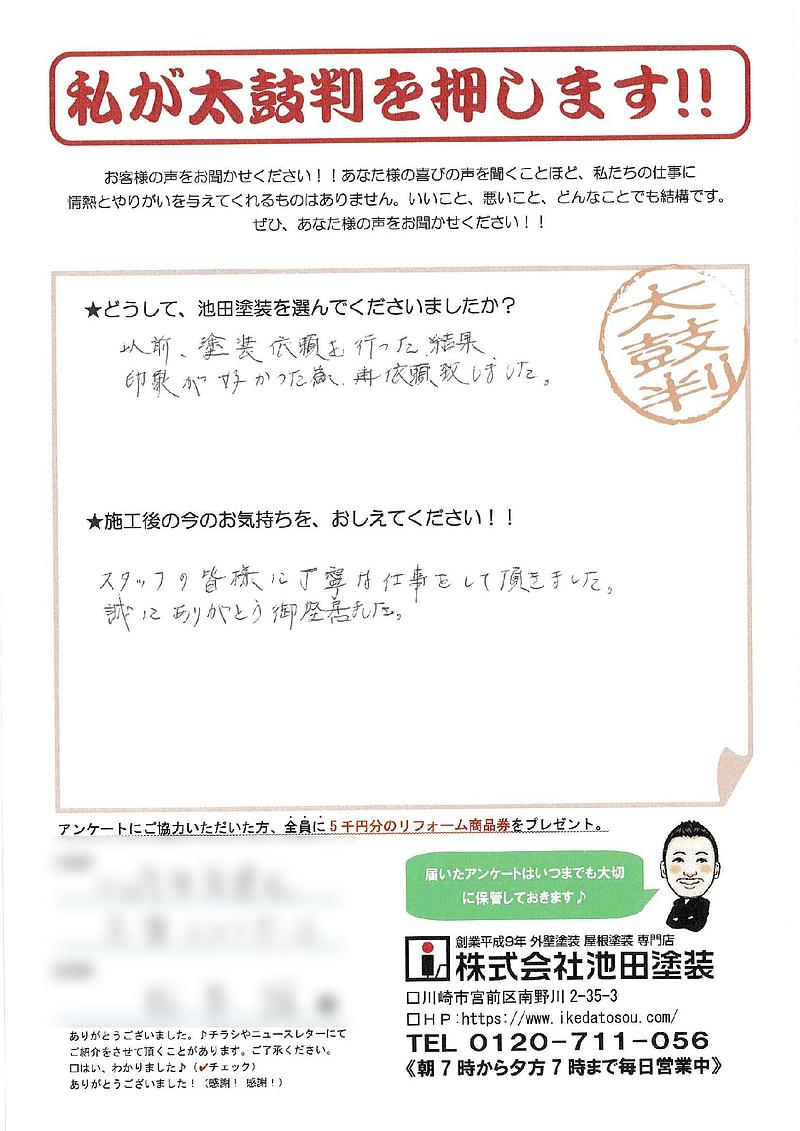 私が太鼓判を押します!!
お客様の声をお聞かせください！！あなた様の喜びの声を聞くことほど、私たちの仕事に
情熱とやりがいを与えてくれるものはありません。いいこと、悪いこと、どんなことでも結構です。
ぜひ、あなた様の声をお聞かせください！！
太鼓判
★どうして、池田塗装を選んでくださいましたか？
以前、塗装依頼を行った結果
印象が好かった為、再依頼致しました。
★施工後の今のお気持ちを、おしえてください！！
スタッフの皆様に丁寧な仕事をして頂きました。
誠にありがとう御座いました。
アンケートにご協力いただいた方、全員に５千円分のリフォーム商品券をプレゼント。
届いたアンケートはいつまでも大切
に保管しておきます♪
創業平成9年 外壁塗装 屋根塗装 専門店
株式会社池田塗装
口川崎市宮前区南野川 2-35-3
口ＨＰ:https://www.ikedatosou.com/
TEL 0120-711-056
《朝７時から夕方７時まで毎日営業中》
ありがとうございました。♪チラシやニュースレターにて
ご紹介をさせて頂くことがあります。ご了承ください。
口はい、わかりました♪（✔チェック）
ありがとうございました！（感謝！感謝！）